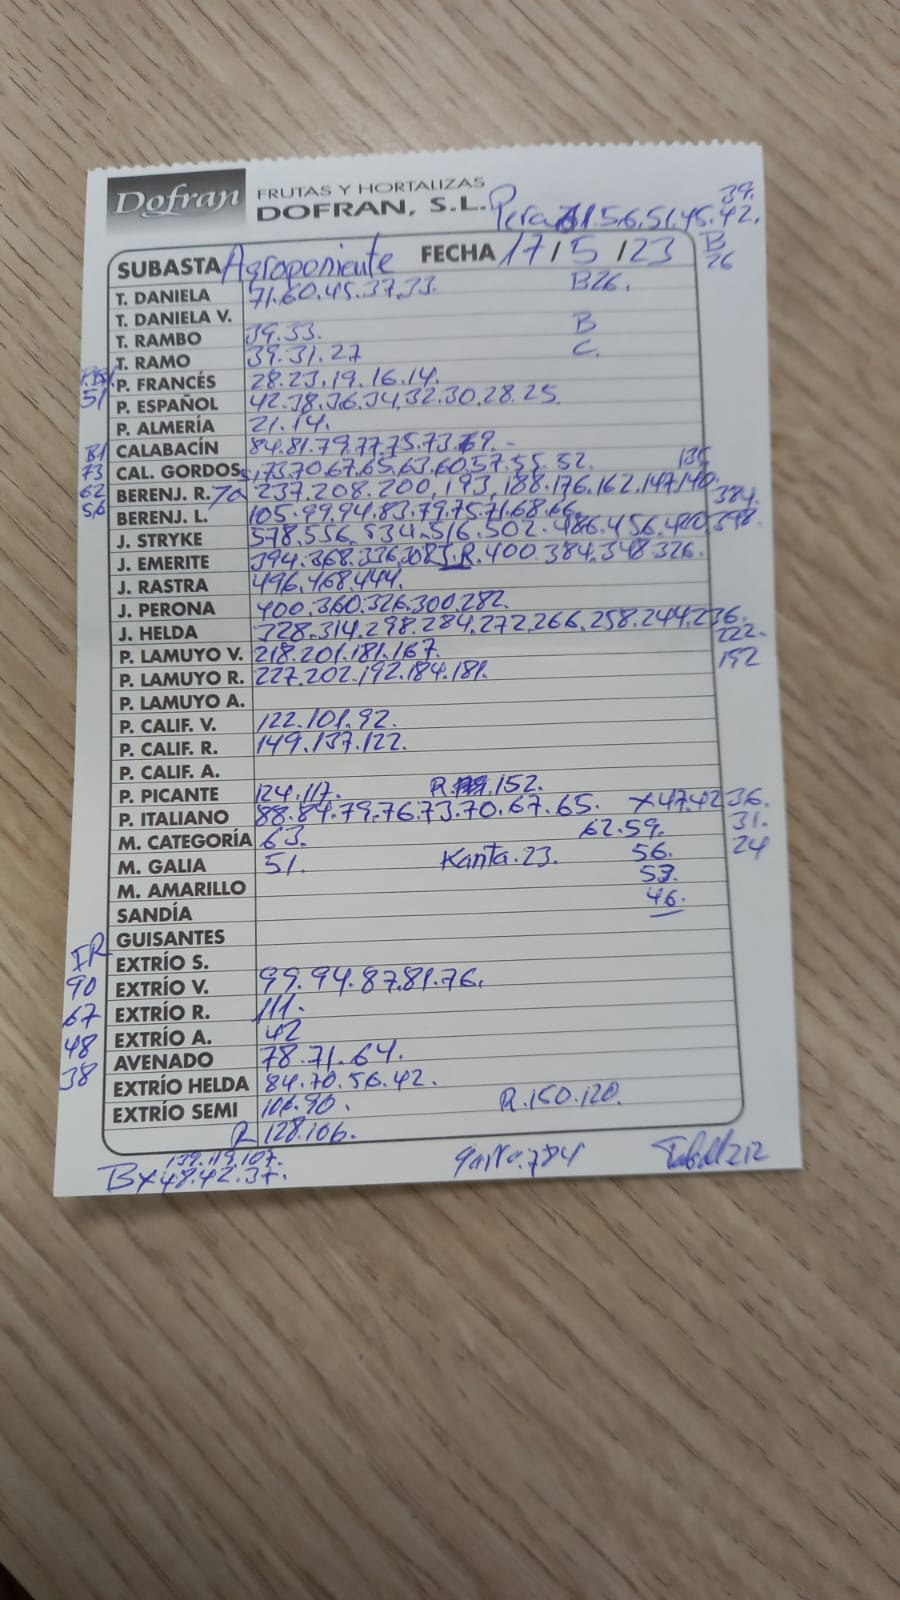 Dofran FRUTAS Y HORTALIZAS
DOFRAN, S.L.
39.
Pera 61.56.51.45.42.
B
26
SUBASTA Agroponiente FECHA 17/5/23
T. DANIELA 71.60.45.37.33. B26.
T. DANIELA V.
T. RAMBO 39.33. B
T. RAMO 39.31.27 C.
P. FRANCÉS 28.23.19.16.14.
51 P. ESPAÑOL 42.38.36.34.32.30.28.25.
P. ALMERÍA 21.14.
81 CALABACÍN 84.81.79.77.75.73.69.-
73 CAL. GORDOS 73.70.67.65.63.60.57.55.52. 135
62 BERENJ. R. 70 237.208.200.193.188.176.162.147.140.
56 BERENJ. L. 105.99.94.83.79.75.71.68.66. 384.
J. STRYKE 578.556.534.516.502.486.456.420.398.
J. EMERITE 394.368.336.308 S.R.400.384.348.326.
J. RASTRA 496.468.444.
J. PERONA 400.360.326.300.282.
J. HELDA 328.314.298.284.272.266.258.244.236.
P. LAMUYO V. 218.201.181.167. 222.
P. LAMUYO R. 227.202.192.184.181. 192
P. LAMUYO A.
P. CALIF. V. 122.101.92.
P. CALIF. R. 149.137.122.
P. CALIF. A.
P. PICANTE 124.117. R. 152.
P. ITALIANO 88.84.79.76.73.70.67.65. X47.42 36.
M. CATEGORÍA 63. 62.59. 31.
M. GALIA 51. Kanta.23. 56. 24
M. AMARILLO 53.
SANDÍA 46.
GUISANTES
IR EXTRÍO S.
90 EXTRÍO V. 99.94.87.81.76.
67 EXTRÍO R. 111.
48 EXTRÍO A. 42
38 AVENADO 78.71.64.
EXTRÍO HELDA 84.70.56.42.
EXTRÍO SEMI 106.90. R.150.120.
R 128.106.
139.119.107.
BX48.42.37.